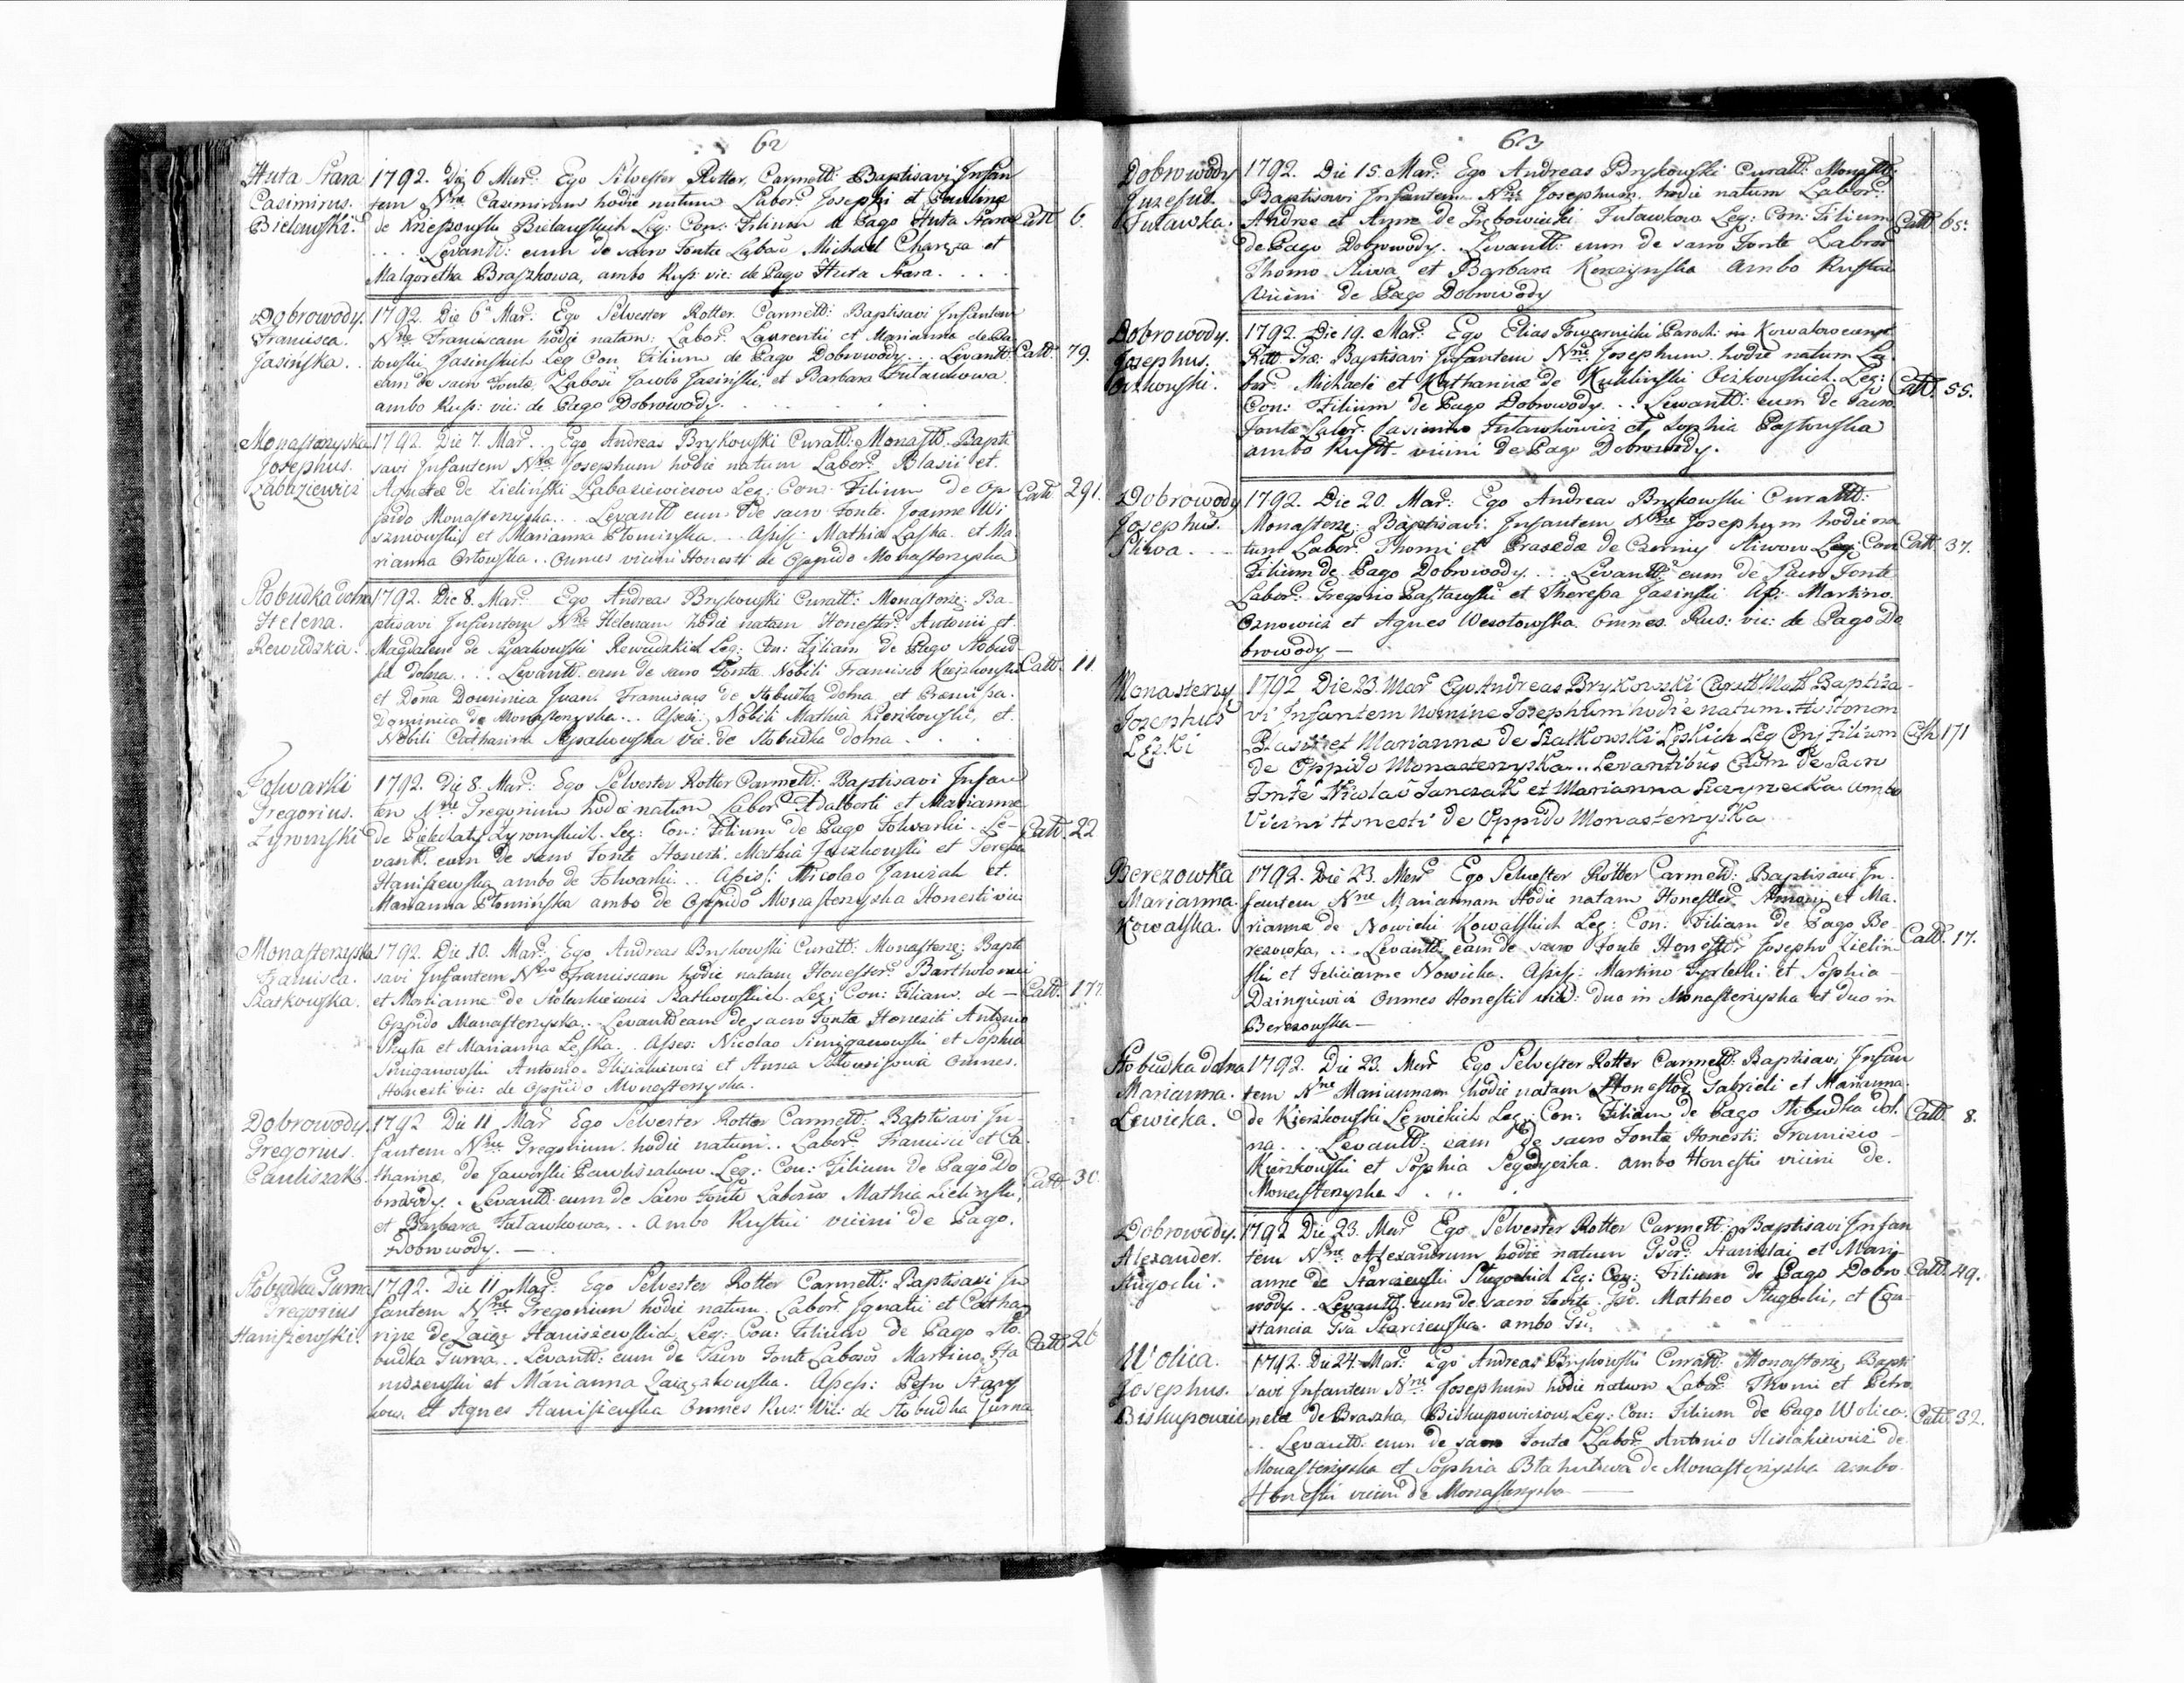 62
Huta Stara
Casimirus.
Bielawski.
1792. Die 6 Mar: Ego Silvester Rotter, Carmett: Baptisavi Infan
tem Nne Casimirum hodie natum Labor: Josephi et Paulinæ
de Bielawskich Leg: Con: Filium de Pago Huta Stara
Levantt: eum de sacro Fonte Labor Michael et
Malgoretha Braszkowa, ambo Rus: vic: de Pago Huta Stara.
Catt 6.
Dobrowody.
Francisca.
Jasińska.
1792. Die 6a Mar: Ego Selvester Rotter. Carmett: Baptisavi Infantem
Nne Franciscam hodie natam: Labor: Laurentii et Marianna de
Jasinskich Leg Con Filium de Pago Dobrowody... Levantt:
eam de sacro Fonte, Labori Jacobo Jasiński, et Barbara Futawkowa
ambo Rus: vic: de Pago Dobrowody.
Catt: 79.
Monasterzyska
Josephus.
Zabaziewicz
1792. Die 7. Mar.. Ego Andreas Brykowski Curatt: Monastt. Bapti
savi Infantem Nne Josephum hodie natum Labor: Blasii et.
Agnetæ de Zieliński Zabaziewiczow Leg: Con: Filium de Op
pido Monasterzyska... Levantt eum de sacro Fonte. Joanne Wi
szniowski et Marianna Słominska... Assis: Mathia Laska. et Ma
rianna Orłowska.. Omnes vicini Honesti de Oppido Monasterzyska
Catt 291.
Slobudka dolna
Helena.
Rewudzka.
1792. Die 8. Mar: Ego Andreas Brykowski Curatt: Monaster: Ba
ptisavi Infantem Nne Helenam hodie natam Honestor: Antonii et
Magdalene de Rewudzkich Leg: Con: Filiam de Pago Slobud
ka dolna... Levantt: eam de sacro Fonte Nobili Francisco Kierzkowski
et Dominica Franciscus de Slobudka dolna et
Dominica de Monasterzyska... Assis: Nobili Mathia Kierzkowski, et.
Nobili Catharina vic. de Slobudka dolna
Catt: 11.
Folwarki
Gregorius.
Zyrowski
1792. Die 8. Mar: Ego Selvester Rotter Carmett: Baptisavi Infan
tem Nne Gregorium hodie natum Labor Adalberti et Marianne
de Leg: Con: Filium de Pago Folwarki. Le-
vantt. eum de sacro Fonte Honesti. Mathia Juszkowski et Teresia
Staniszewska ambo de Folwarki... Assis: Nicolao Janczak et.
Marianna Słominska ambo de Oppido Monasterzyska Honesti vic:
Catt: 22.
Monasterzyska
Francisca.
Szatkowska.
1792. Die 10. Mar: Ego Andreas Brykowski Curatt: Monaster: Bapti
savi Infantem Nne Franciscam hodie natam Honestor: Bartholomei
et Marianne de Szatkowskich. Leg: Con: Filiam. de -
Oppido Monasterzyska.. Levantt eam de sacro Fonte Honesti Antonio
et Marianna Leska.. Asses: Nicolao Smiganowski et Sophia
Smiganowski Antonio Slisiakiewicz et Anna Omnes.
Honesti vic: de Oppido Monasterzyska.
Catt: 177.
Dobrowody.
Gregorius.
Pauliszak.
1792 Die 11 Mar Ego Selvester Rotter Carmett: Baptisavi In
fantem Nne Gregorium. hodie natum.. Labor: Francisci et Ca
tharinæ, de Jaworski Pawliszakow. Leg: Con: Filium de Pago Do
browody. Levantt: eum de Sacro Fonte Laborios Mathia Zielinski,
et Barbara Futawkowa... Ambo Rustici vicini de Pago.
Dobrowody. —
Catt: 30.
Slobudka Gurna
Gregorius
Staniszewski.
1792. Die 11 Mar: Ego Selvester Rotter Carmett: Baptisavi In
fantem Nne Gregorium hodie natum. Labor: Ignatii et Catha
rine de Zaiąc Staniszewskich Leg: Con: Filium de Pago Slo
budka Gurna... Levantt: eum de Sacro Fonte Laboros Martino Sta
niszewski et Marianna Zaiączkowska. Asses: Petro
et Agnes Staniszewska Omnes Rus: Vic: de Slobudka Gurna
Catt 26
63
Dobrowody
Juzefus.
Futawka.
1792. Die 15. Mar: Ego Andreas Brykowski Curatt. Monastt:
Baptisavi Infantem Nne Josephum. hodie natum Labor:
Andreæ et Annæ de Grębowiecki Futawkow Leg: Con: Filium
de Pago Dobrowody. Levantt: eum de sacro Fonte Labor
Thomo Sliwa et Barbara ambo Rustici
Vicini de Pago Dobrowody
Catt 65.
Dobrowody.
Josephus.
Oizkowski.
1792. Die 19. Mar: Ego Elias Towarnicki Paroch: in Kowalow
Ritt. Græ: Baptisavi Infantem Nne Josephum hodie natum La
bor: Michaeli et Katharinæ de Kuklinski Oizkowskich. Leg:
Con: Filium de Pago Dobrowody... Lewantt: eum de sacro
Fonte Labor: Casimiro Futawkowicz et Zophia Pastowska
ambo Rustt. vicini de Pago Dobrowody.
Catt. 55.
Dobrowody
Josephus.
Sliwa...
1792. Die 20. Mar: Ego Andreas Brykowski Curatt:
Monaster: Baptisavi. Infantem Nne Josephum hodie na
tum Labor: Thomi et Prasedæ de Czerniy Sliwow Leg: Con
Filium de Pago Dobrowody... Levantt: eum de Sacro Fonte
Labor: Gregorio Pastawski et Theressa Jasinski As: Martino.
Oznowicz et Agnes Wesołowska Omnes. Rus: vic: de Pago Do
browody —
Catt 37.
Monasterzy
Jozephus
Lęski
1792 Die 23. Mar Ego Andreas Brykowski Curatt Matt Baptiza-
vi Infantem Nomine Josephum hodie natum. Honorum
Blasii et Mariannæ de Szatkowski Lęskich Leg Conj Filium
de Oppido Monasterzyska.. Levantibus Eum De Sacro
Fonte Nicolao Janczak et Marianna Luczynecka ambo
Vicini Honesti de Oppido Monasterzyska
Cath 171
Berezowka
Marianna.
Kowalska.
1792. Die 23. Mar Ego Selvester Rotter Carmett: Baptisavi In.
fantem Nne Mariannam Hodie natam Honestor: et Ma.
rianna de Nowicki Kowalskich Leg: Con: Filiam de Pago Be
rezowka... Levantt: eam de sacro Fonte Honestor Josepho Zielin
ski et Felicianne Nowicka. Assis: Martino et Sophia -
Dzingiewicz Omnes Honesti vid: duo in Monasterzyska et duo in
Berezowska —
Catt: 17.
Slobudka dolna
Marianna.
Lewicka.
1792. Die 23. Mar Ego Selvester Rotter Carmett: Baptisavi Infan
tem Nne Mariannam hodie natam Honestor Gabrieli et Marianna.
de Kierzkowski Lewickich Leg: Con: Filiam de Pago Slibudka dol.
na... Levantt: eam de sacro Fonte Honesti. Francisco -
Kierzkowski et Sophia ambo Honesti vicini de.
Monasterzyska
Catt: 8.
Dobrowody.
Alexander.
Slugocki.
1792 Die 23. Mar Ego Selvester Rotter Carmett: Baptisavi Infan
tem Nne Alexandrum hodie natum Gser: Stanislai et Mari-
anne de Starczewski Slugockich Leg: Con: Filium de Pago Dobro
wody.. Levantt eum de sacro Fonte. Matheo Slugocki, et Con-
stancia Gsa Starczewska. ambo Gsi.
Catt. 49.
Wolica.
Josephus.
Biskupowicz
1792. Die 24. Mar: Ego Andreas Brykowski Curatt: Monaster: Bapti
savi Infantem Nne Josephum hodie natum Labor: Thomi et Petro
nela de Braszka, Biskupowiczow, Leg: Con: Filium de Pago Wolica.
.. Levantt: eum de sacro Fonte Labor: Antonio Slisiakiewicz de.
Monasterzyska et Sophia de Monasterzyska ambo.
Honesti vicini de Monasterzyska —
Catt. 32.